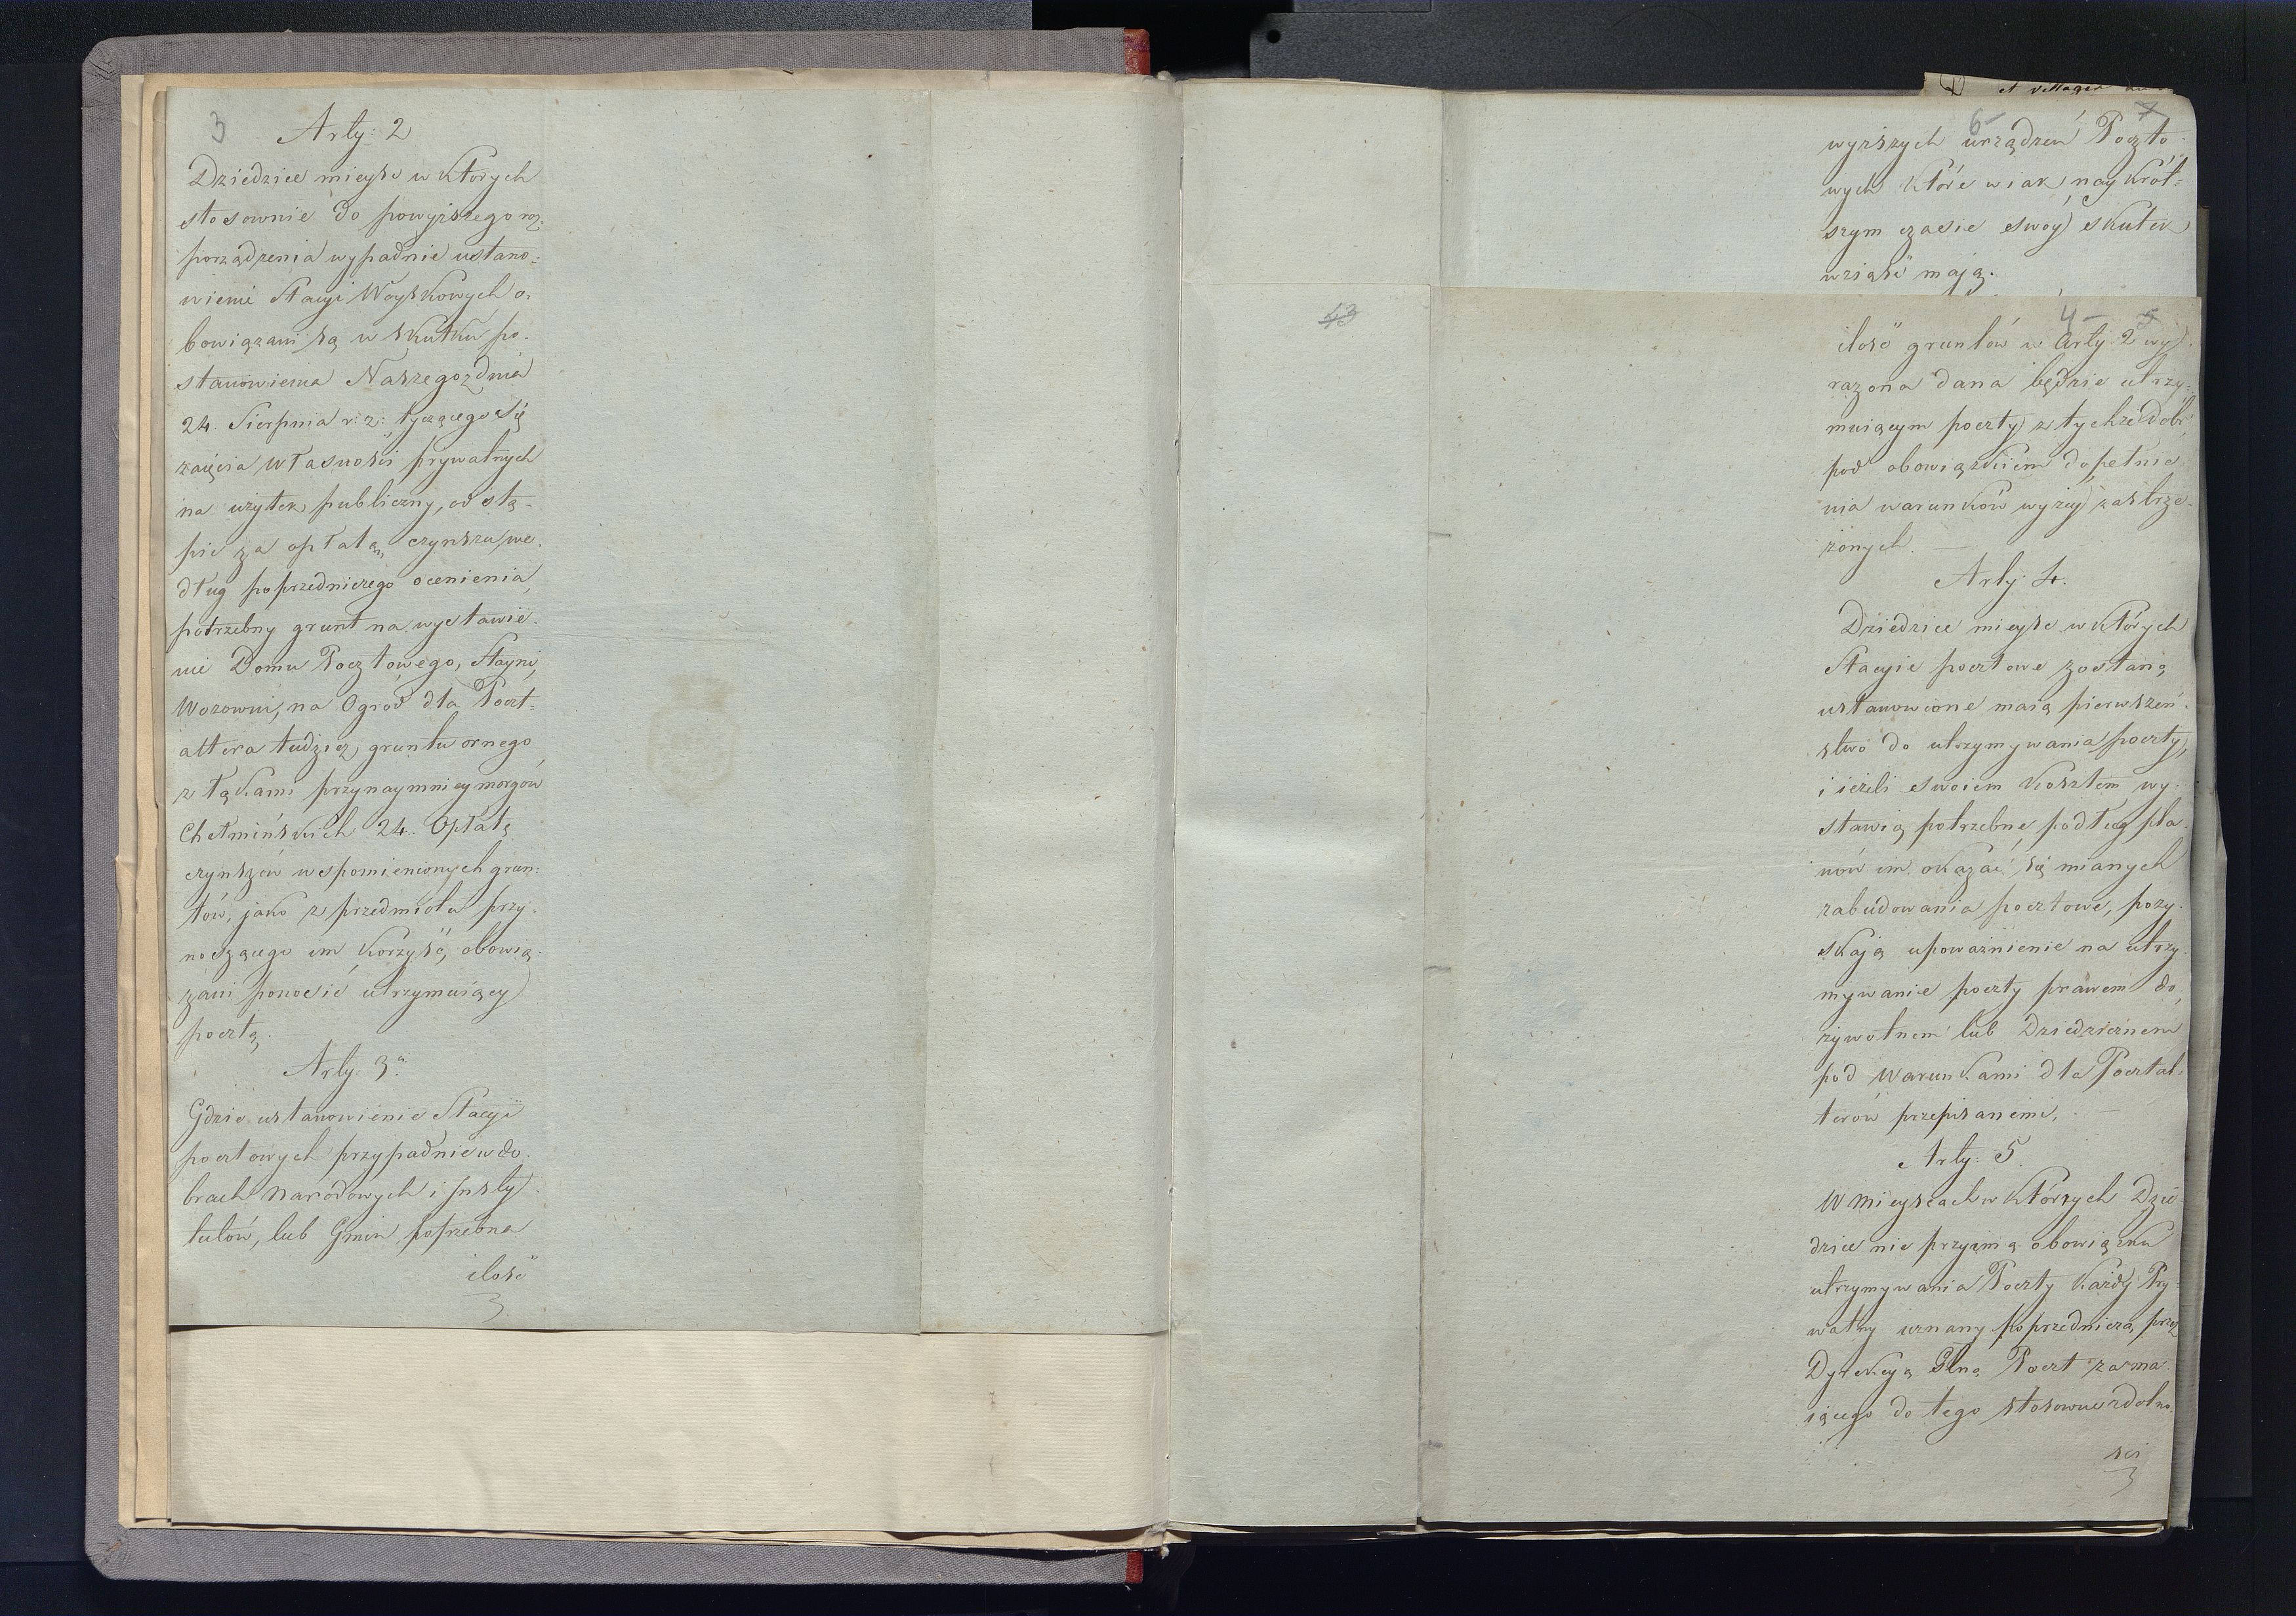 3
Arty: 2
Dziedzice mieysc w których
stosownie do powyższego roz:
porządzenia wypadnie ustano:
wienie Stacyi Woyskowych o:
bowiązani są w skutku po:
stanowienia Naszego z dnia
24. Sierpnia r: z: tyczącego się
zaięcia własności prywatnych
na użytek publiczny, odstą-
pić za opłatą czynszu, we-
dług poprzedniczego ocenienia,
potrzebny grunt na wystawie-
nie Domu Pocztowego, Stayni,
Wozowni, na Ogród dla Poczt-
altera tudzież, gruntu ornego
z łąkami przynaymniey morgów
Chełmińskich 24. Opłatę
czynszów wspomnienionych grun:
tów, jako z przedmiotu przy-
noszącego im korzyść, obowią-
zani ponosić utrzymuiący
pocztę. —
Arty: 3.
Gdzie ustanowienie Stacyi
pocztowych przypadnie w do-
brach Narodowych i Insty-
tutów, lub Gmin, potrzebna
ilość
et villages
6 - 7
wyższych urządzeń Poczto-
wych które w iak naykrót:
szym czasie swóy skutek
wziąść mają.
43
4 - 5
ilość gruntów w Arty 2 wy-
rażona dana będzie utrzy-
muiącym poczty z tychże dóbr
pod obowiązkiem dopełnie-
nia warunków wyżey zastrze-
żonych. —
Arty: 4.
Dziedzice mieysc w których
Stacyie pocztowe zostaną
ustanowione maią pierwszeń-
stwo do utrzymywania poczty,
i ieżeli swoiem kosztem wy-
stawią potrzebne, podług pla-
nów im okazać się mianych
zabudowania pocztowe, pozy-
skają upoważnienie na utrzy-
mywanie poczty prawem do-
żywotnem lub Dziedzicznem
pod Warunkami dla Pocztal-
terów przepisanemi. —
Arty: 5.
W Mieyscach w których Dzie-
dzice nie przyimą obowiązku
utrzymywania Poczty każdy Pry-
watny uznany poprzedniczo, przez
Dyrekcyą Glną Poczt za ma-
iącego do tego stosowne zdolno-
ści